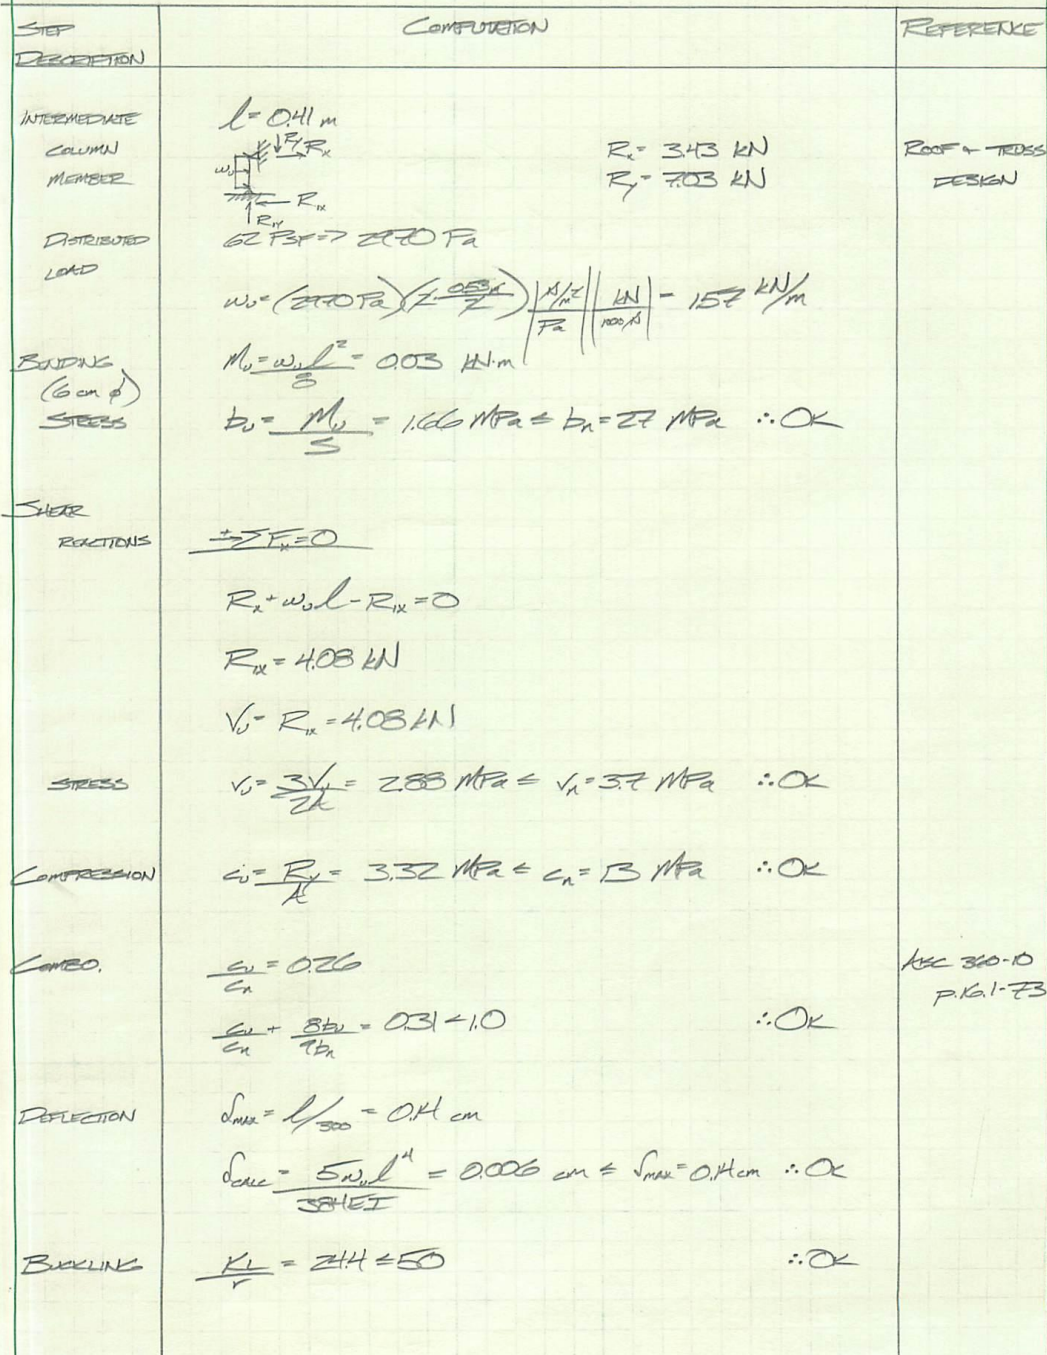 STEP DESCRIPTION
COMPUTATION
REFERENCE
INTERMEDIATE
COLUMN
MEMBER
l = 0.41 m
Ry Rx
wu
R1x
R1y
Rx = 3.43 kN
Ry = 7.03 kN
ROOF + TRUSS
DESIGN
DISTRIBUTED
LOAD
62 PSF => 2970 Pa
wu = (2970 Pa)(2 · 0.53m/2) | N/m² / Pa | kN / 1000 N | = 1.57 kN/m
BENDING
(6 cm φ)
STRESS
Mu = wu l²/8 = 0.03 kN·m
bu = Mu/S = 1.66 MPa ≤ bn = 27 MPa ∴ OK
SHEAR
REACTIONS
+→ ΣFx = 0
Rx + wu l - R1x = 0
R1x = 4.08 kN
Vu = R1x = 4.08 kN
STRESS
vu = 3Vu/2A = 2.88 MPa ≤ vn = 3.7 MPa ∴ OK
COMPRESSION
cu = Ry/A = 3.32 MPa ≤ cn = 13 MPa ∴ OK
COMBO.
cu/cn = 0.26
AISC 360-10
p.16.1-73
cu/cn + 8bu/9bn = 0.31 < 1.0 ∴ OK
DEFLECTION
δmax = l/300 = 0.14 cm
δcalc = 5wu l⁴/384EI = 0.006 cm ≤ δmax = 0.14 cm ∴ OK
BUCKLING
KL/r = 24.4 ≤ 50 ∴ OK